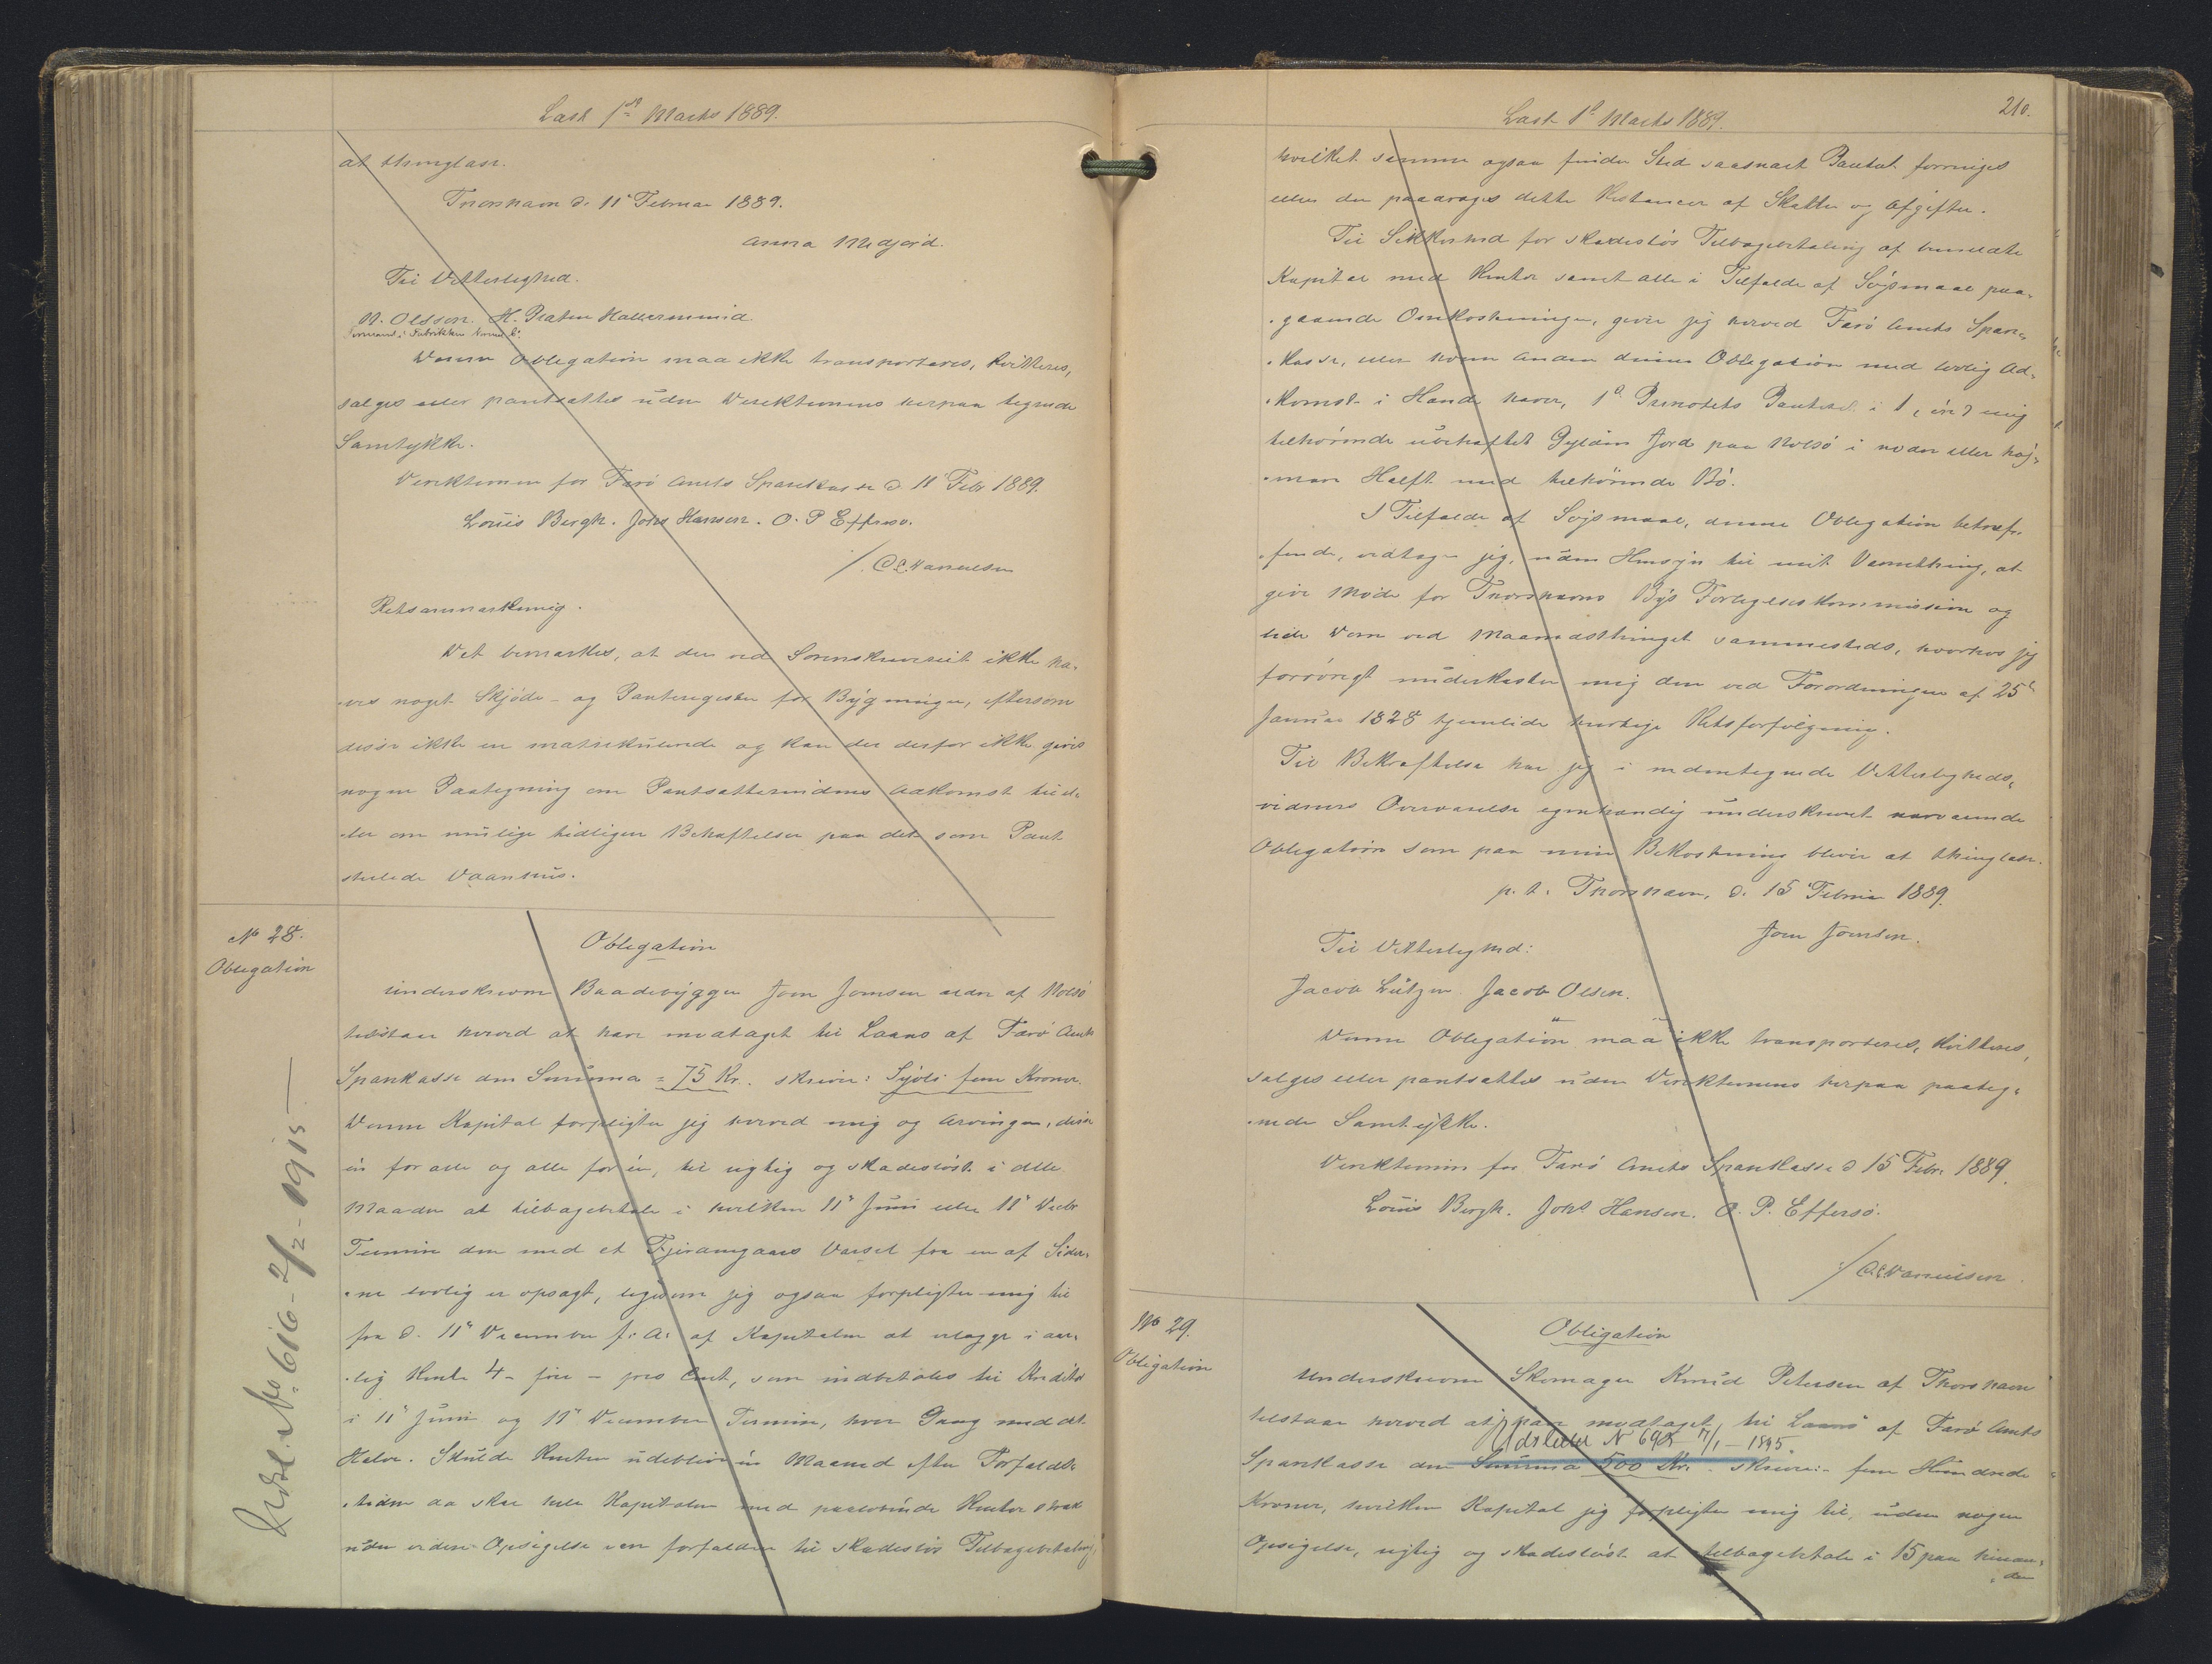 Læst 1ste Marts 1889.
at thinglæse.
Thorshavn d. 11' Februar 1889.
Anna Midjord.
Til Vitterlighed.
N. Olsson. H. Praten Hallermund.
Denne Obligation maa ikke transporteres, kvitteres,
sælges eller pantsættes uden Direktionens herpaa tegnede
Samtykke.
Direktionen for Færø Amts Sparekasse d. 11' Febr 1889.
Louis Bergh. Johs Hansen. O. P. Effersø.
/ C.C. Danielsen
Retsanmærkning.
Det bemærkes, at der ved Sorenskriveriet ikke ha-
ves noget Skjøde- og Panteregister for Bygninger, eftersom
disse ikke ere matrikulerede og kan der derfor ikke gives
nogen Paategning om Pantsætterindens Adkomst til el-
ler om mulige tidligere Behæftelser paa det som Pant
stillede Vaanhus.
No 28.
Obligation
Obligation
Underskrevne Baadebygger Joen Joensen ældre af Nolsø
tilstaar herved at have modtaget til Laans af Færø Amts
Sparekasse den Summa = 75 Kr. skriver: Syvti fem Kroner.
Denne Kapital forpligter jeg herved mig og Arvinger, disse
én for alle og alle for én, til rigtig og skadesløst i alle
Maader at tilbagebetale i hvilken 11' Juni eller 11' Decbr
Termin den med et Fjerdingaars Varsel fra en af Sider-
ne lovlig er opsagt, ligesom jeg ogsaa forpligter mig til
fra d. 11' December f: A: af Kapitalen at erlægge i aar-
lig Rente 4 - fire - pro Cent, som indbetales til Kreditor
i 11' Juni og 11' December Termin, hver Gang med det
Halve. Skulde Renten udeblive én Maaned efter Forfalds-
tiden da skal hele Kapitalen med paaløbende Renter strax
uden videre Opsigelse være forfalden til skadesløs Tilbagebetaling,
Udsl. No. 616 - 2/2 - 1915
Læst 1ste Marts 1889.
210.
hvilket samme ogsaa finder Sted saasnart Pantet forringes
eller der paadrages dette Restancer af Skatter og Afgifter.
Til Sikkerhed for skadesløs Tilbagebetaling af bemeldte
Kapital med Renter samt alle i Tilfælde af Søgsmaal paa-
gaaende Omkostninger, giver jeg herved Færø Amts Spare-
kasse, eller hvem anden denne Obligation med lovlig Ad-
komst i Hænde haver, 1ste Prioritets Panteret i 1, én, mig
tilhørende ubehæftet Gylden Jord paa Nolsø i nedre eller høj-
mare Helft med tilhørende Bø.
I Tilfælde af Søgsmaal, denne Obligation betræf-
fende, vedtager jeg, uden Hensyn til mit Værnething, at
give Møde for Thorshavns Bys Forligelseskommission og
lide Dom ved Maanedsthinget sammesteds, hvorhos jeg
forøvrigt underkaster mig den ved Forordningen af 25'
Januar 1828 hjemlede hurtige Retsforfølgning.
Til Bekræftelse har jeg i medentegnede Vitterligheds-
vidners Overværelse egenhændig underskrevet nærværende
Obligation som paa min Bekostning bliver at thinglæse.
p. t. Thorshavn, d. 15' Februar 1889.
Joen Joensen.
Til Vitterlighed:
Jacob Lützen. Jacob Olsen.
Denne Obligation maa ikke transporteres, kvitteres,
sælges eller pantsættes uden Direktionens herpaa paateg-
nede Samtykke.
Direktionen for Færø Amts Sparekasse d 15 Febr. 1889.
Louis Bergh. Johs Hansen. O. P. Effersø.
/ C.C. Danielsen
No 29.
Obligation
Obligation
Underskrevne Skomager Knud Petersen af Thorshavn
tilstaar herved at have modtaget til Laans af Færø Amts
Udslettet N 692 7/1 - 1895.
Sparekasse den Summa 500 Kr. skriver: fem Hundrede
Kroner, hvilken Kapital jeg forpligter mig til, uden nogen
Opsigelse, rigtig og skadesløst at tilbagebetale i 15 paa hinan-
den